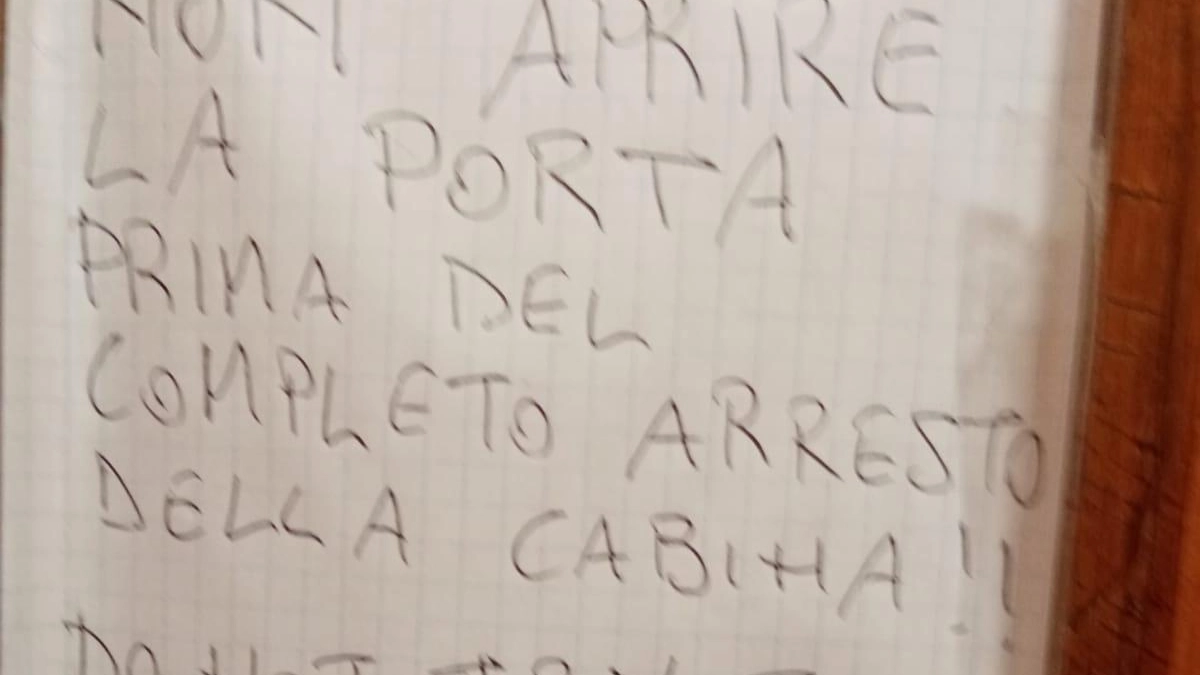 NON APRIRE
LA PORTA
PRIMA DEL
COMPLETO ARRESTO
DELLA CABINA!!
DO NOT